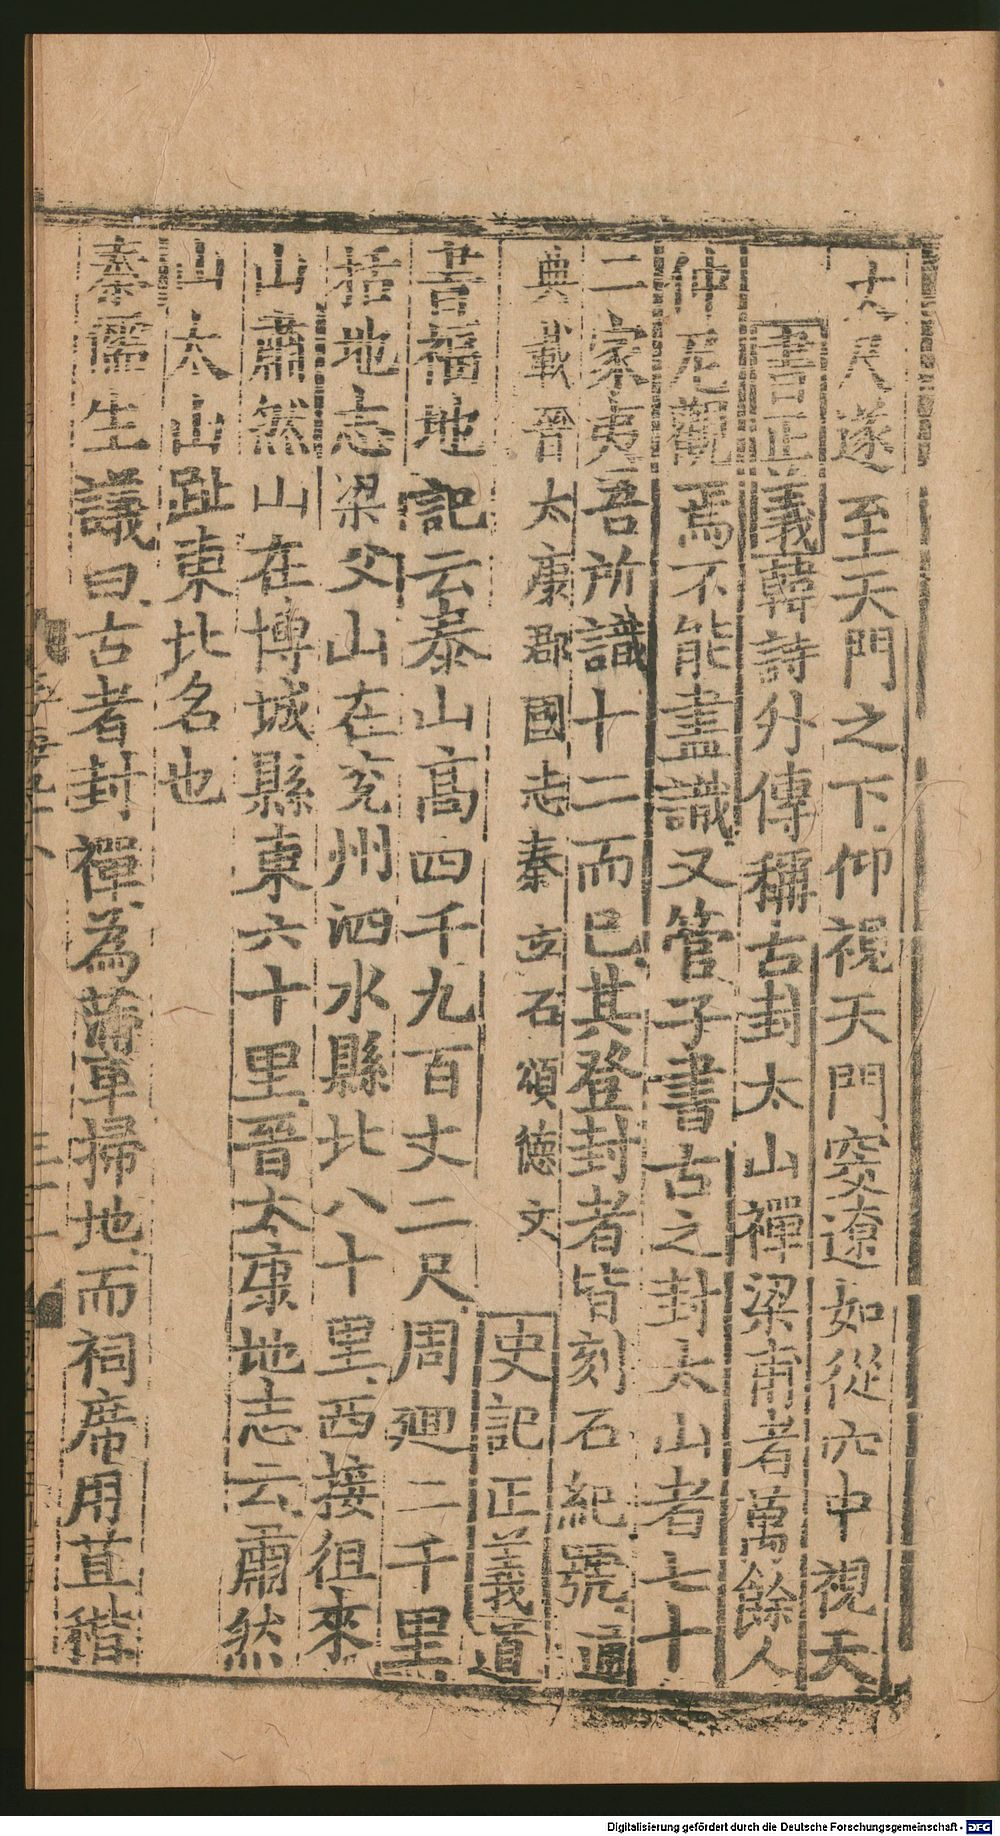 丈尺遂至天門之下仰視天門窔遼如從穴中視天
書正義韓詩外傳稱古封太山禪梁甫者萬餘人
仲尼觀焉不能盡識又管子書古之封太山者七十
二家夷吾所識十二而已其登封者皆刻石紀號通
典載晉太康郡國志秦立石頌德文
史記正義道
書福地記云泰山高四千九百丈二尺周廻二千里
括地志梁父山在兖州泗水縣北八十里西接徂來
山肅然山在博城縣東六十里晉太康地志云肅然
山太山趾東北名也
秦儒生議曰古者封禪為蒲車掃地而祠席用苴稭
Digitalisierung gefördert durch die Deutsche Forschungsgemeinschaft - DFG